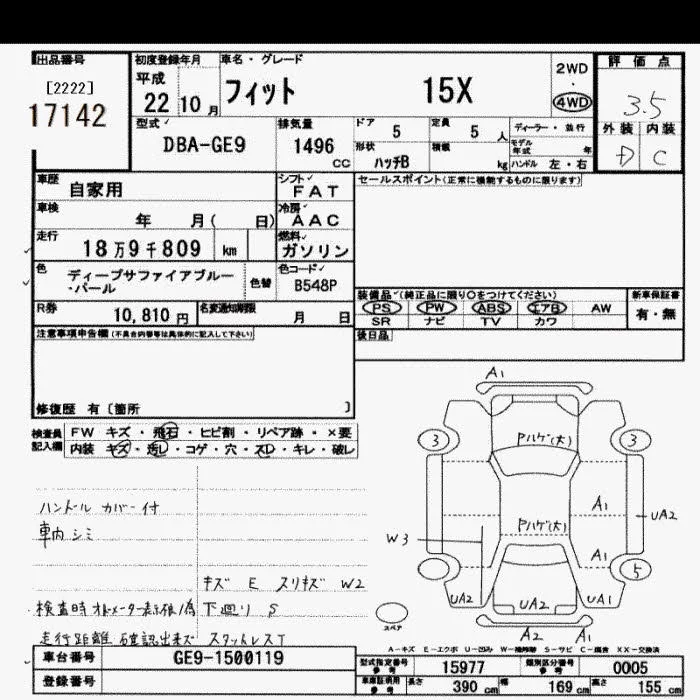 出品番号 初度登録年月 車名・グレード 評価点
[2222] 平成 2WD
17142 22 10月 フィット 15X ・ 4WD 3.5
型式 排気量 ドア 5 定員 5人 ディーラー・並行 外装 内装
DBA-GE9 1496cc 形状 ハッチB 積載 kg モデル年式 年 ハンドル 左・右 D C
車歴 自家用 シフト FAT セールスポイント(正常に機能するものに限ります)
車検 年 月( 日) 冷房 AAC
走行 18万9千809 km 燃料 ガソリン
色 ディープサファイアブルー・パール 色替 色コード B548P
装備品(純正品に限り○をつけてください) 新車保証書
PS PW ABS エアB AW 有・無
SR ナビ TV カワ
R券 10,810円 名変通知期限 月 日
後日品
注意事項申告欄(不具合内容等は具体的に記入して下さい)
修復歴 有〔箇所 〕
検査員記入欄 FW キズ・飛石・ヒビ割・リペア跡・×要
内装 キズ・汚レ・コゲ・穴・スレ・キレ・破レ
ハンドル カバー付
車内 シミ
キズ E スリキズ W2
検査時オドメーター表示確ﾉ為 下廻り S
走行距離 確認出来ズ スタットレスT
A1
3 3
Pハゲ(大)
A1
Pハゲ(大)
UA2
W3
A1
5
UA2 UA2 UA1
スペア
A2 A1
A-キズ E-エクボ U-凹み W-補修跡 S-サビ C-腐食 XX-交換済
車台番号 GE9-1500119
登録番号
型式指定番号 参考 15977 類別区分番号 参考 0005
車庫証明用 参考 長さ 390cm 幅 169cm 高さ 155cm